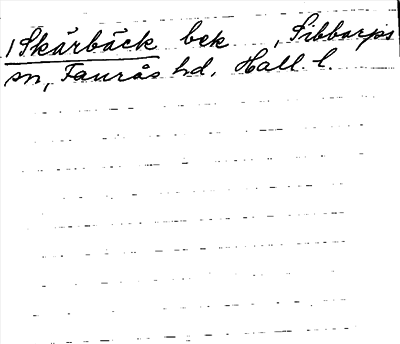 1 Skärbäck bek , Sibbarps
sn, Faurås hd. Hall. l.